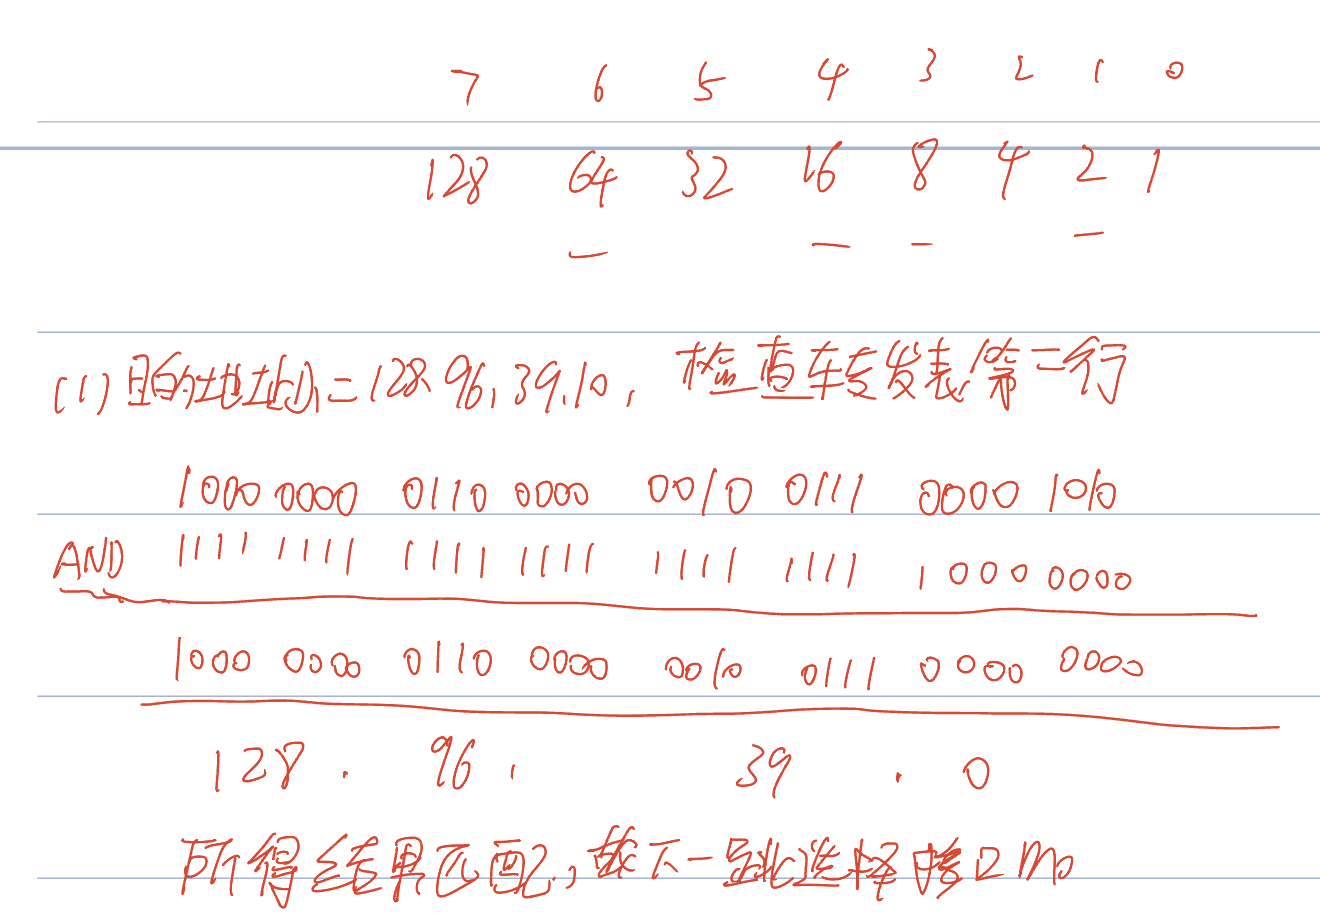 7 6 5 4 3 2 1 0
128 64 32 16 8 4 2 1
(1) 目的地址D₁=128.96.39.10, 检查转发表第一行
1000 0000 0110 0000 0010 0111 0000 1010
AND 1111 1111 1111 1111 1111 1111 1000 0000
1000 0000 0110 0000 0010 0111 0000 0000
128 . 96 . 39 . 0
所得结果匹配, 故下一跳选择接口m0